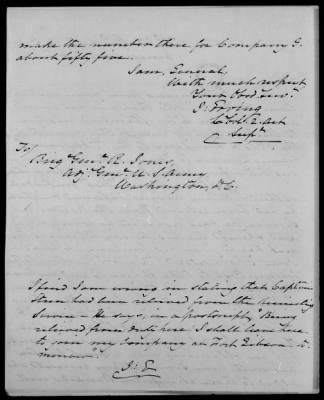 make the number there for Company G.
about fifty five.
I am, General,
With much respect
Your Obdt Servt
J. Erving
Supt
To
Brig. Genl. R. Jones,
Adj. Genl. U S Army
Washington, D.C.
I find I am wrong in stating that Captain
had been relieved from the recruiting
Service - He says, in a postscript, "Being
relieved from duty here I shall leave here
to join my Company at Fort Gibson to-
morrow".
J. E